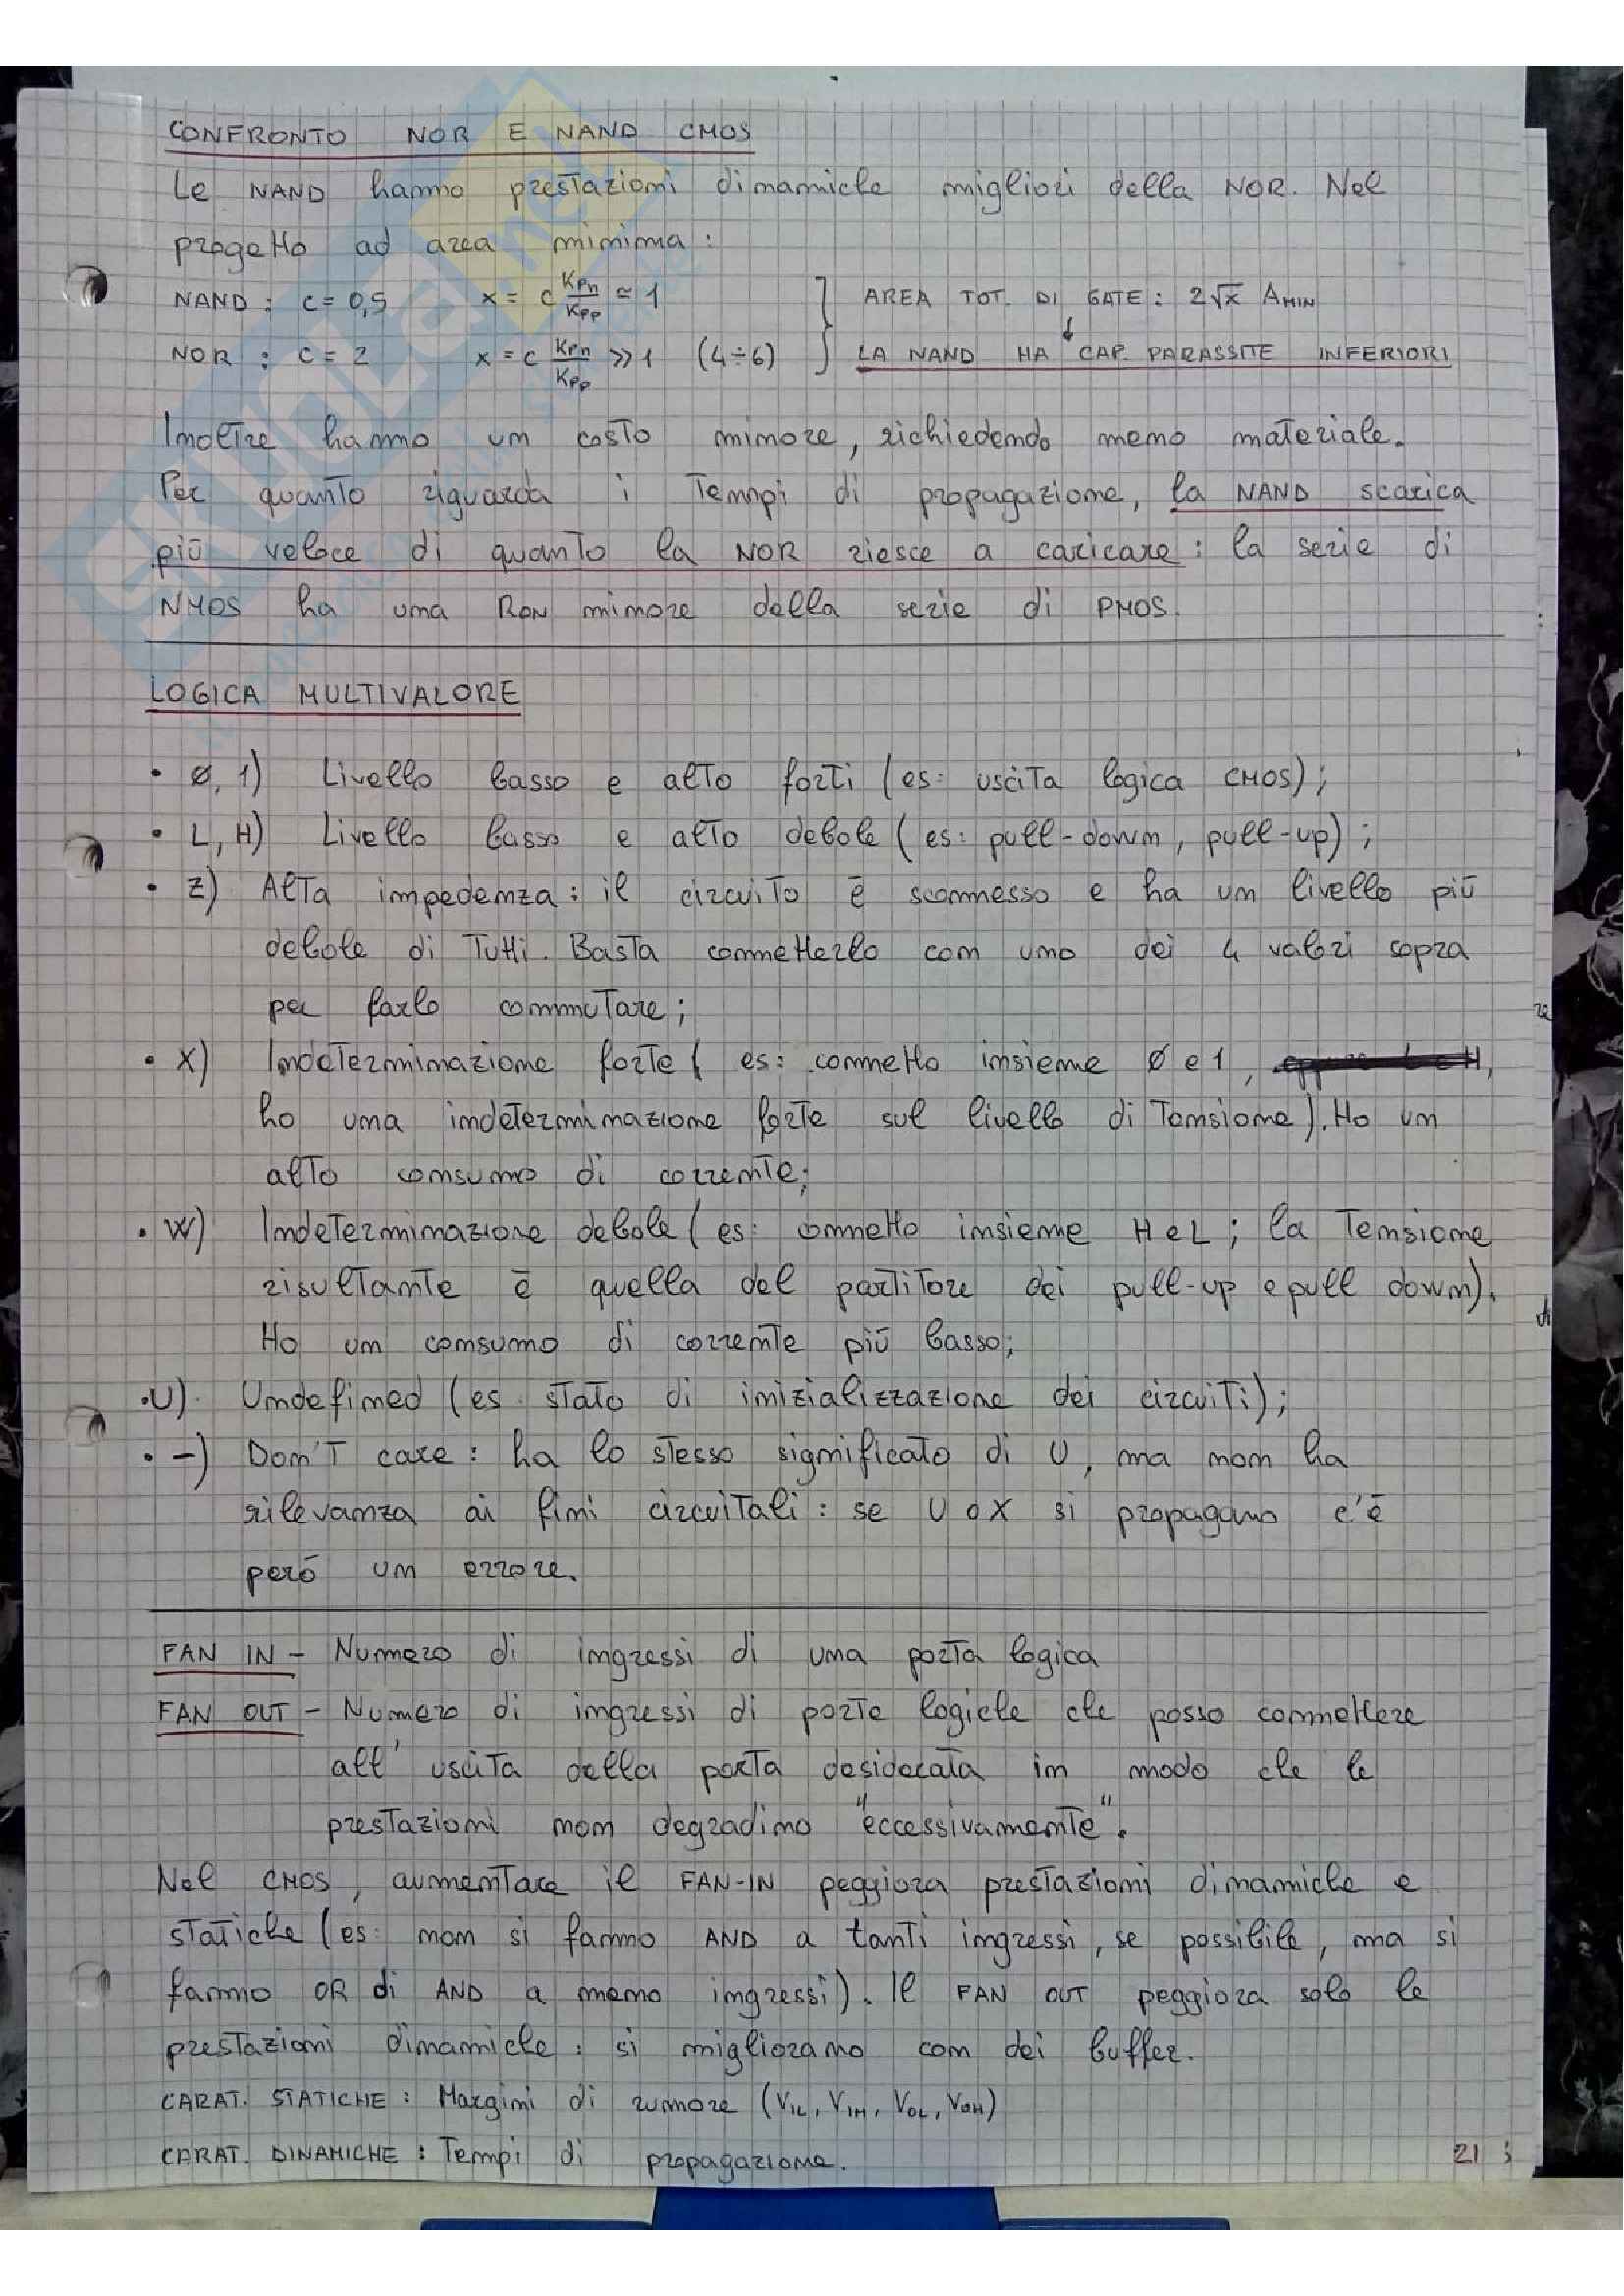 CONFRONTO NOR E NAND CMOS
Le NAND hanno prestazioni dinamiche migliori della NOR. Nel
progetto ad area minima:
NAND: c = 0,5 x = c Kpn/Kpp ≃ 1 } AREA TOT. DI GATE: 2√x AMIN
↓
NOR: c = 2 x = c Kpn/Kpp ≫ 1 (4÷6) } LA NAND HA CAP. PARASSITE INFERIORI
Inoltre hanno un costo minore, richiedendo meno materiale.
Per quanto riguarda i Tempi di propagazione, la NAND scarica
più veloce di quanto la NOR riesce a caricare: la serie di
NMOS ha una RON minore della serie di PMOS.
LOGICA MULTIVALORE
• Ø, 1) Livello basso e alto forti (es: uscita logica CMOS);
• L, H) Livello basso e alto debole (es: pull-down, pull-up);
• Z) Alta impedenza: il circuito è sconnesso e ha un livello più
debole di Tutti. Basta connetterlo con uno dei 4 valori sopra
per farlo commutare;
• X) Indeterminazione forte (es: connetto insieme Ø e 1,
ho una indeterminazione forte sul livello di Tensione). Ho un
alto consumo di corrente;
• W) Indeterminazione debole (es: connetto insieme H e L; la Tensione
risultante è quella del partitore dei pull-up e pull down).
Ho un consumo di corrente più basso;
• U) Undefined (es. stato di inizializzazione dei circuiti);
• -) Don't care: ha lo stesso significato di U, ma non ha
rilevanza ai fini circuitali: se U o X si propagano c'è
però un errore.
FAN IN - Numero di ingressi di una porta logica
FAN OUT - Numero di ingressi di porte logiche che posso connettere
all'uscita della porta desiderata in modo che le
prestazioni non degradino "eccessivamente".
Nel CMOS, aumentare il FAN-IN peggiora prestazioni dinamiche e
statiche (es: non si fanno AND a tanti ingressi, se possibile, ma si
fanno OR di AND a meno ingressi). Il FAN OUT peggiora solo le
prestazioni dinamiche: si migliorano con dei buffer.
CARAT. STATICHE: Margini di rumore (VIL, VIH, VOL, VOH)
CARAT. DINAMICHE: Tempi di propagazione.
21